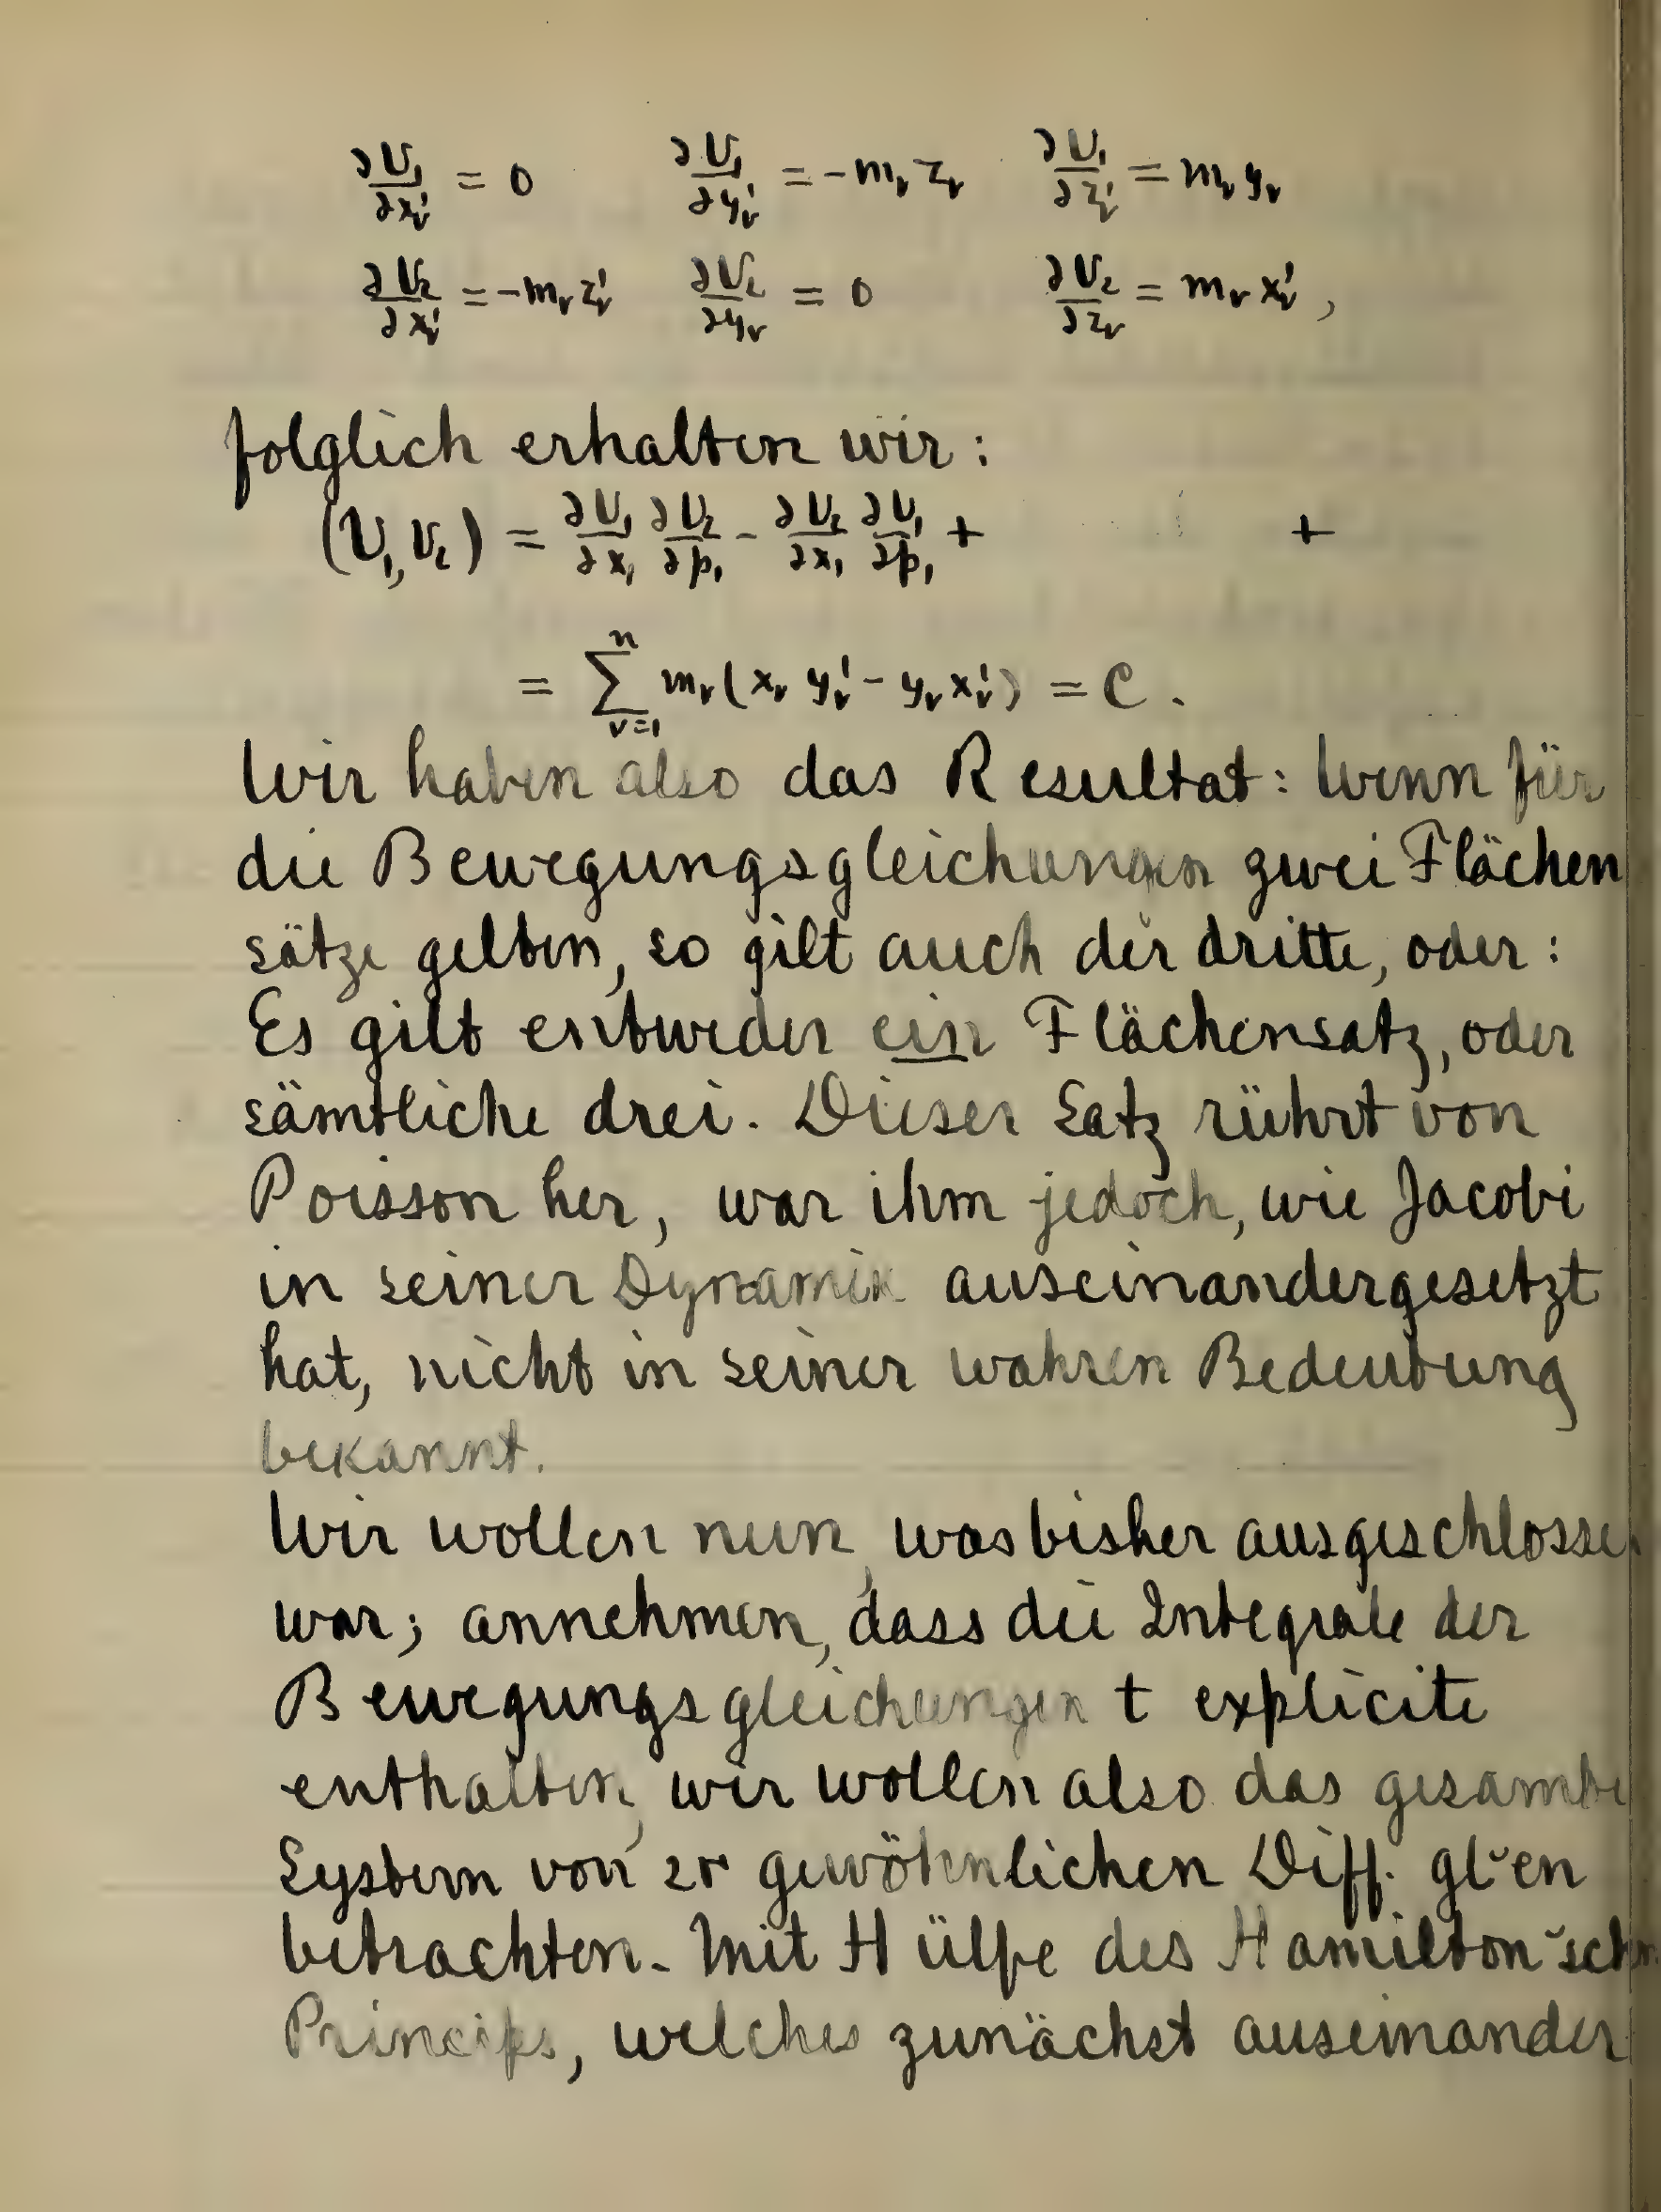 ∂U₁/∂x'ᵥ = 0   ∂U₁/∂y'ᵥ = -mᵥ zᵥ   ∂U₁/∂z'ᵥ = mᵥ yᵥ
∂U₂/∂x'ᵥ = -mᵥ z'ᵥ   ∂U₂/∂yᵥ = 0   ∂U₂/∂zᵥ = mᵥ x'ᵥ ,
folglich erhalten wir:
(U₁, U₂) = ∂U₁/∂x₁ ∂U₂/∂p₁ - ∂U₂/∂x₁ ∂U₁/∂p₁ + +
= ∑ᵥ₌₁ⁿ mᵥ(xᵥ y'ᵥ - yᵥ x'ᵥ) = C .
Wir haben also das Resultat: Wenn für
die Bewegungsgleichungen zwei Flächen
sätze gelten, so gilt auch der dritte, oder:
Es gilt entweder ein Flächensatz, oder
sämtliche drei. Dieser Satz rührt von
Poisson her, war ihm jedoch, wie Jacobi
in seiner Dynamik auseinandergesetzt
hat, nicht in seiner wahren Bedeutung
bekannt.
Wir wollen nun, was bisher ausgeschlossen
war; annehmen, dass die Integrale der
Bewegungsgleichungen t explicite
enthalten, wir wollen also das gesamte
System von 2r gewöhnlichen Diff. gl˘en
betrachten. Mit Hülfe des Hamilton˘schen
Princips, welches zunächst auseinander